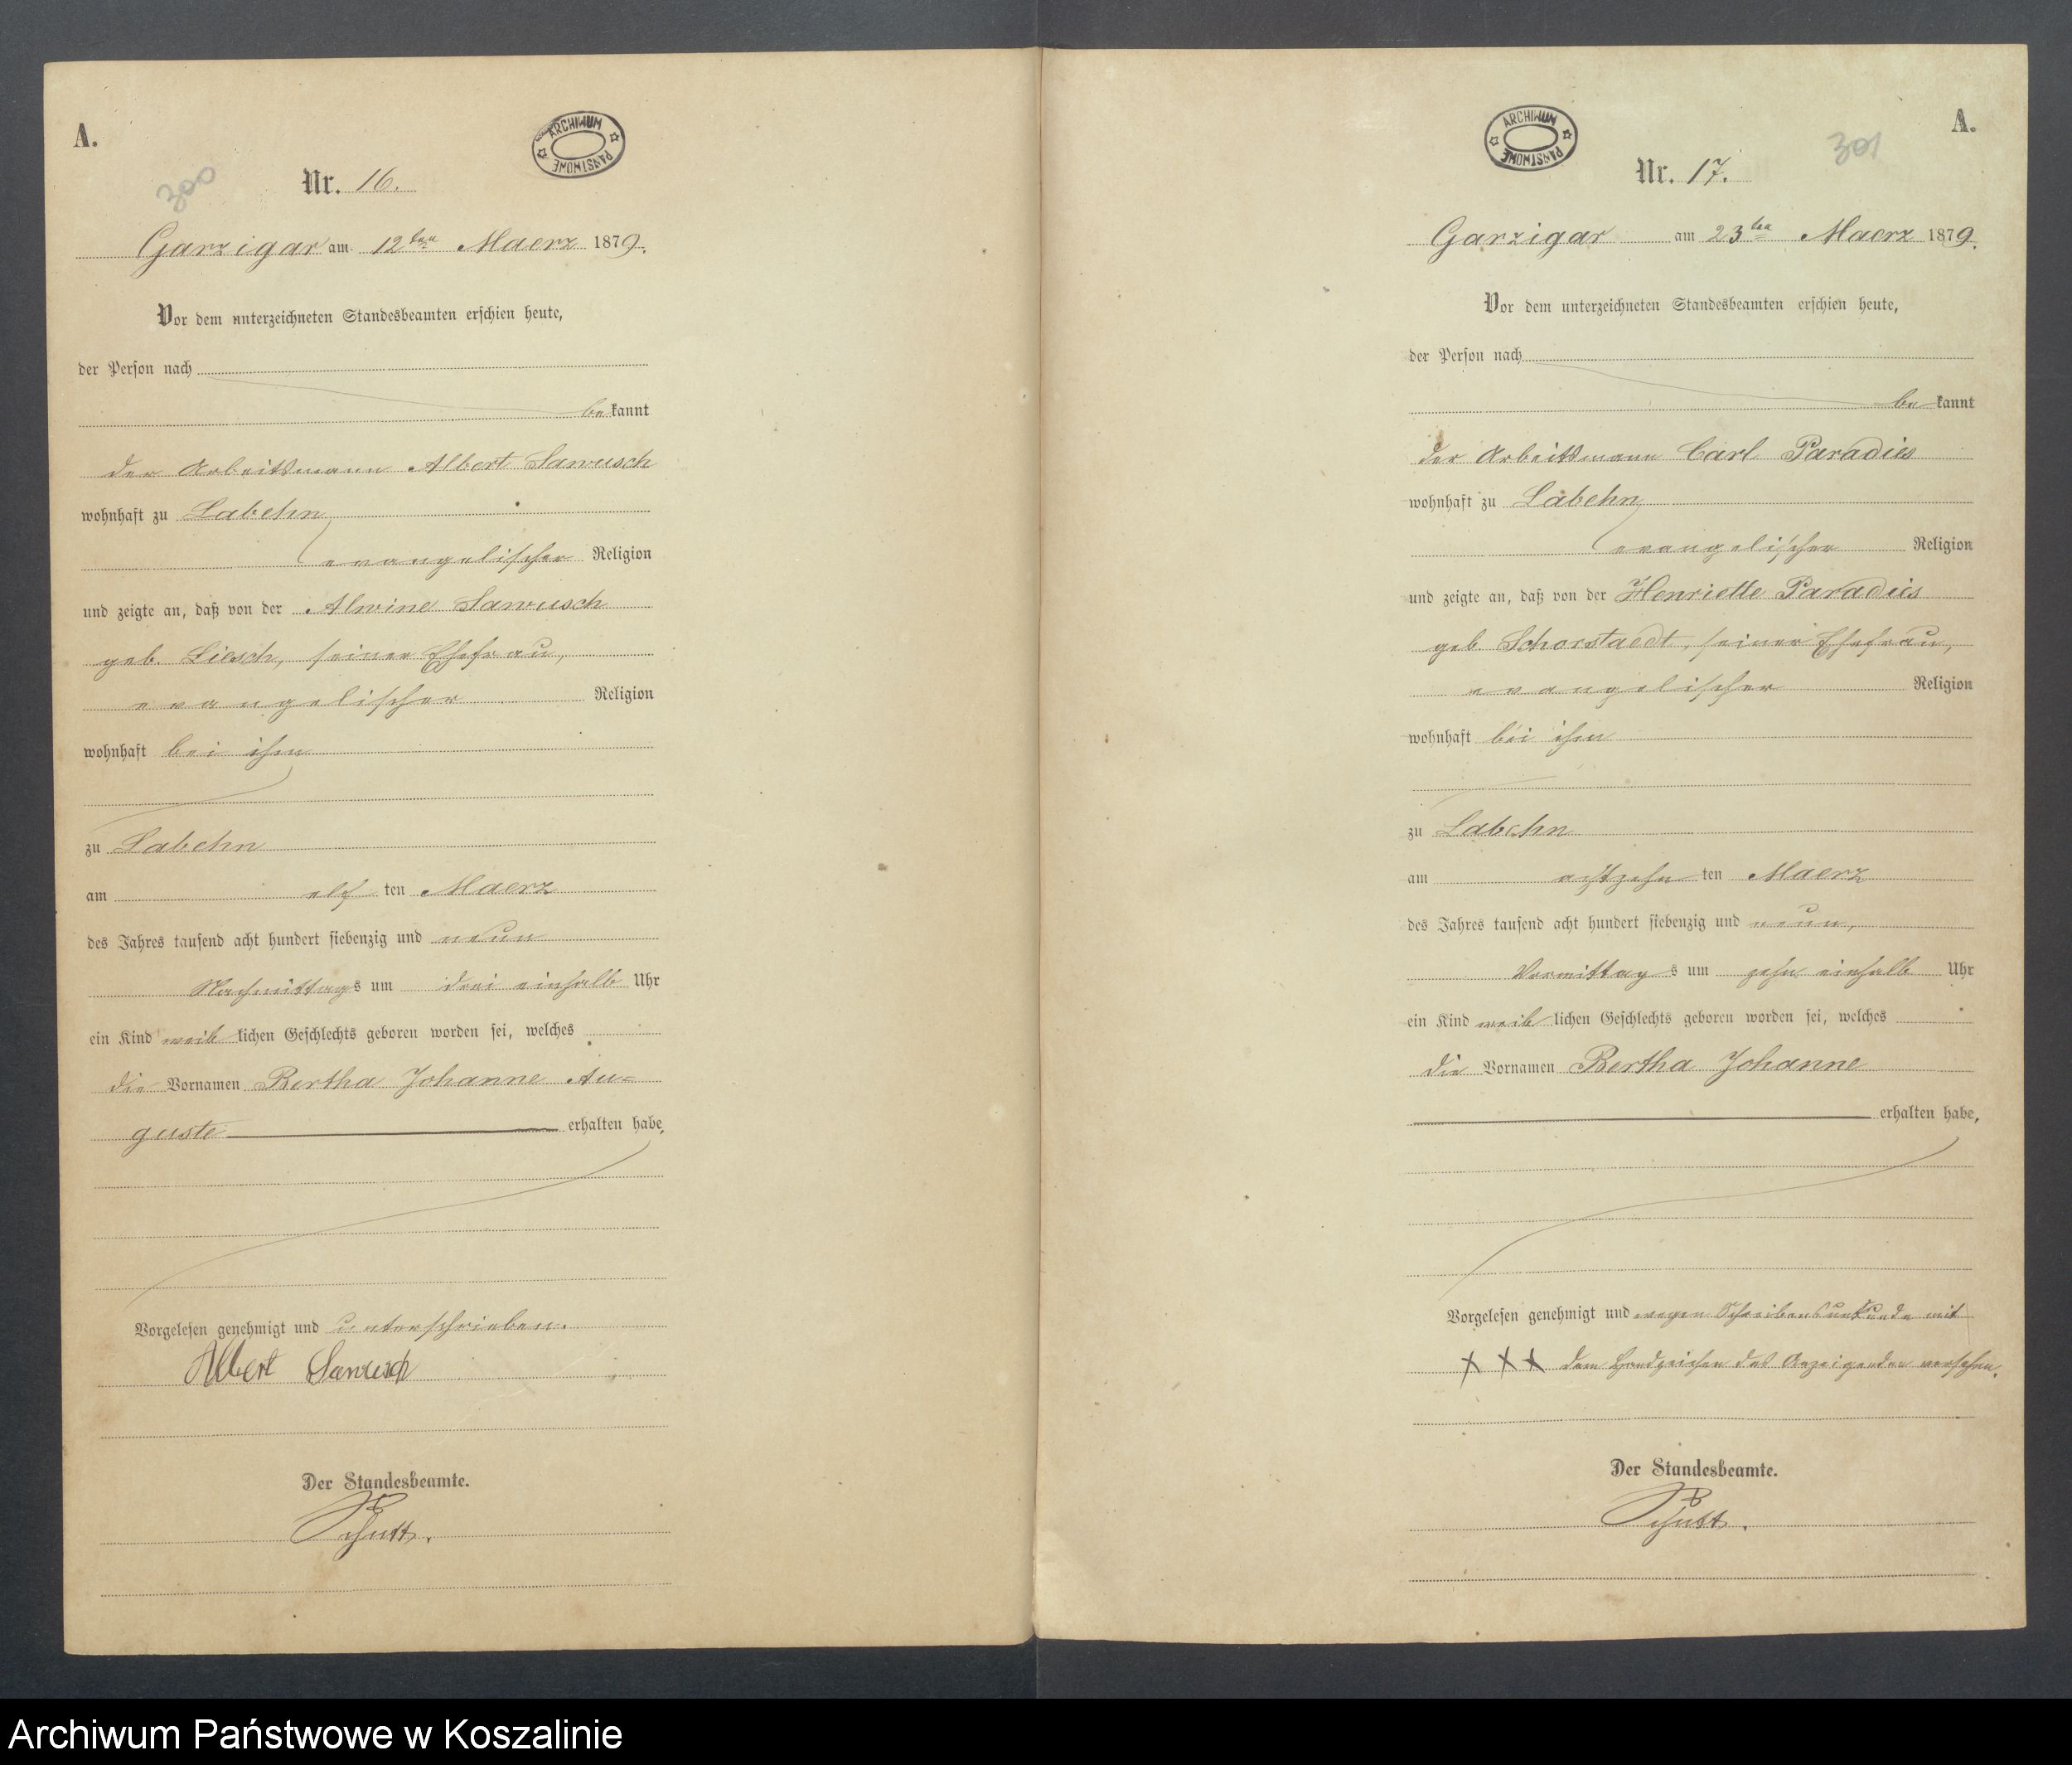 A.
300
Nr. 16.
ARCHIWUM PAŃSTWOWE
Garzigar am 12ten Maerz 1879.
Vor dem unterzeichneten Standesbeamten erschien heute,
der Person nach
bekannt
der Arbeitsmann Albert Sawusch
wohnhaft zu Labehn
evangelischer Religion
und zeigte an, daß von der Alwine Sawusch
geb. Liesch, seiner Ehefrau,
evangelischer Religion
wohnhaft bei ihm
zu Labehn
am elf ten Maerz
des Jahres tausend acht hundert siebenzig und neun
Nachmittags um drei einhalb Uhr
ein Kind weiblichen Geschlechts geboren worden sei, welches
die Vornamen Bertha Johanne Au=
guste erhalten habe,
Vorgelesen genehmigt und unterschrieben.
Albert Sawusch
Der Standesbeamte.
Schutt.
A.
301
Nr. 17.
ARCHIWUM PAŃSTWOWE
Garzigar am 23ten Maerz 1879.
Vor dem unterzeichneten Standesbeamten erschien heute,
der Person nach
bekannt
der Arbeitsmann Carl Paradies
wohnhaft zu Labehn
evangelischer Religion
und zeigte an, daß von der Henriette Paradies
geb. Schorstaedt, seiner Ehefrau,
evangelischer Religion
wohnhaft bei ihm
zu Labehn
am achtzehn ten Maerz
des Jahres tausend acht hundert siebenzig und neun,
Vormittags um zehn einhalb Uhr
ein Kind weiblichen Geschlechts geboren worden sei, welches
die Vornamen Bertha Johanne
erhalten habe,
Vorgelesen genehmigt und wegen Schreibensunkunde mit
XXX dem Handzeichen des Anzeigenden versehen.
Der Standesbeamte.
Schutt.
Archiwum Państwowe w Koszalinie